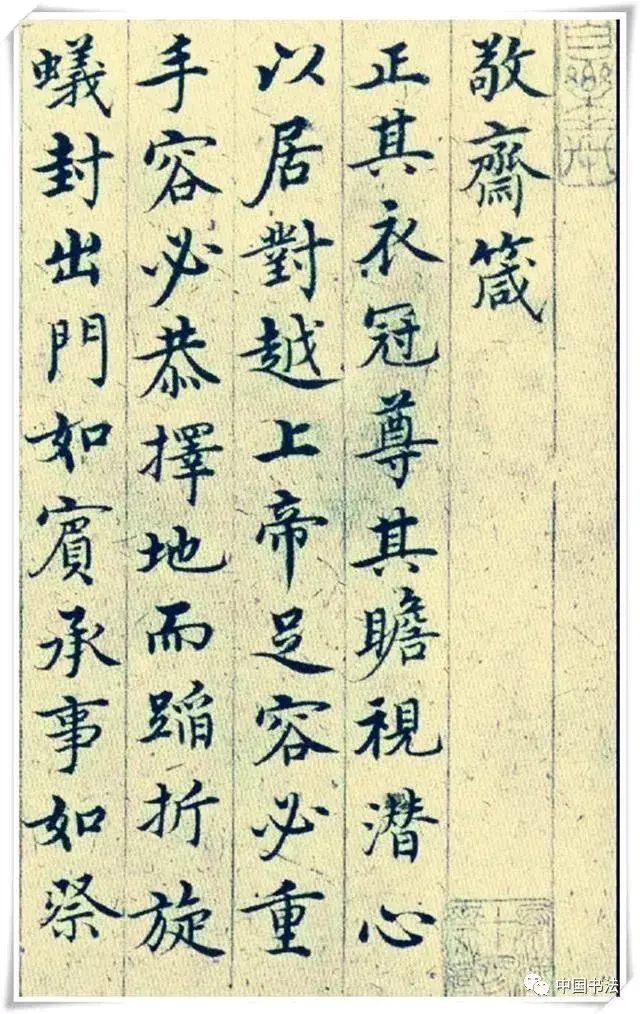 敬齋箴
正其衣冠尊其瞻視潛心
以居對越上帝足容必重
手容必恭擇地而蹈折旋
蟻封出門如賓承事如祭
中国书法